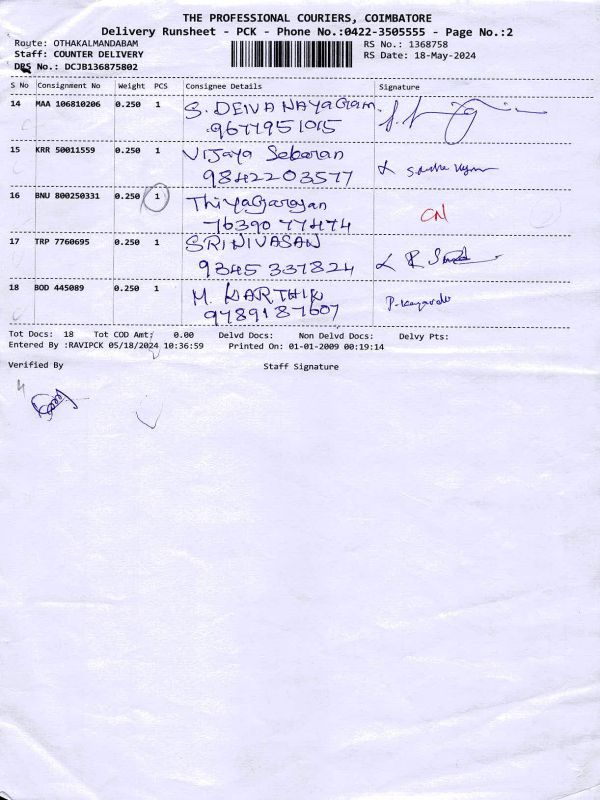 THE PROFESSIONAL COURIERS, COIMBATORE
Delivery Runsheet - PCK - Phone No.:0422-3505555 - Page No.:2
Route: OTHAKALMANDABAM RS No.: 1368758
Staff: COUNTER DELIVERY RS Date: 18-May-2024
DRS No.: DCJB136875802
S No Consignment No Weight PCS Consignee Details Signature
14 MAA 106810206 0.250 1 S. DEIVANAYAGAM.
9677951015
15 KRR 50011559 0.250 1 Vijaya Sekaran
9842203577
16 BNU 800250331 0.250 1 Thiyagarajan CN
7639077474
17 TRP 7760695 0.250 1 SRINIVASAN
9345 337824
18 BOD 445089 0.250 1 M. KARTHIK
9789187607
Tot Docs: 18 Tot COD Amt: 0.00 Delvd Docs: Non Delvd Docs: Delvy Pts:
Entered By :RAVIPCK 05/18/2024 10:36:59 Printed On: 01-01-2009 00:19:14
Verified By Staff Signature